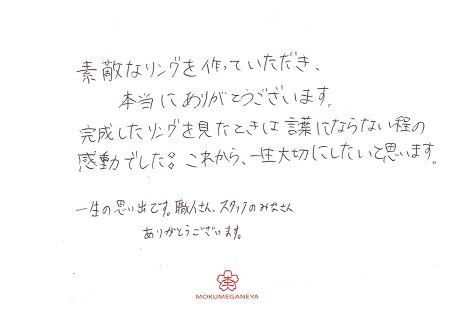 素敵なリングを作っていただき、
本当にありがとうございます。
完成したリングを見たときは言葉にならない程の
感動でした!! これから、一生大切にしたいと思います。
一生の思い出です。職人さん、スタッフのみなさん
ありがとうございます。
MOKUMEGANEYA